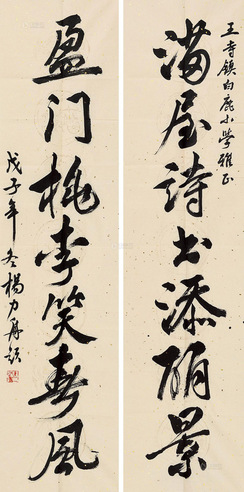 王寺镇白鹿小学雅正
满屋诗书添丽景
盈门桃李笑春风
戊子年冬杨力舟题